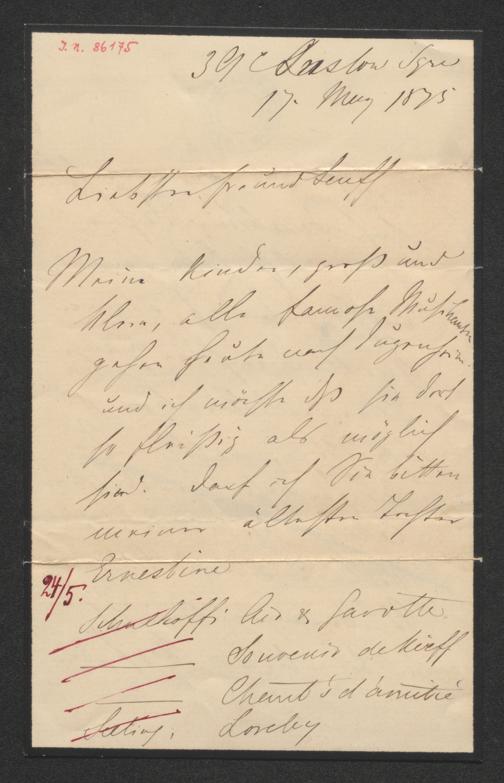 J.N. 86175
39 Onslow Sqre
17. May 1875
Liebster Freund Senff
Meine Kinder, groß und
klein, alle famose Musikanten
gehen heute nach Jugenheim
und ich möchte daß sie dort
so fleißig als möglich
sind. Darf ich Sie bitten
meiner ältesten Tochter
Ernestine
24/5.
Schulhoff: Air & Gavotte
Souvenir de Kieff
Chants d'amitié
Seeling. Loreley